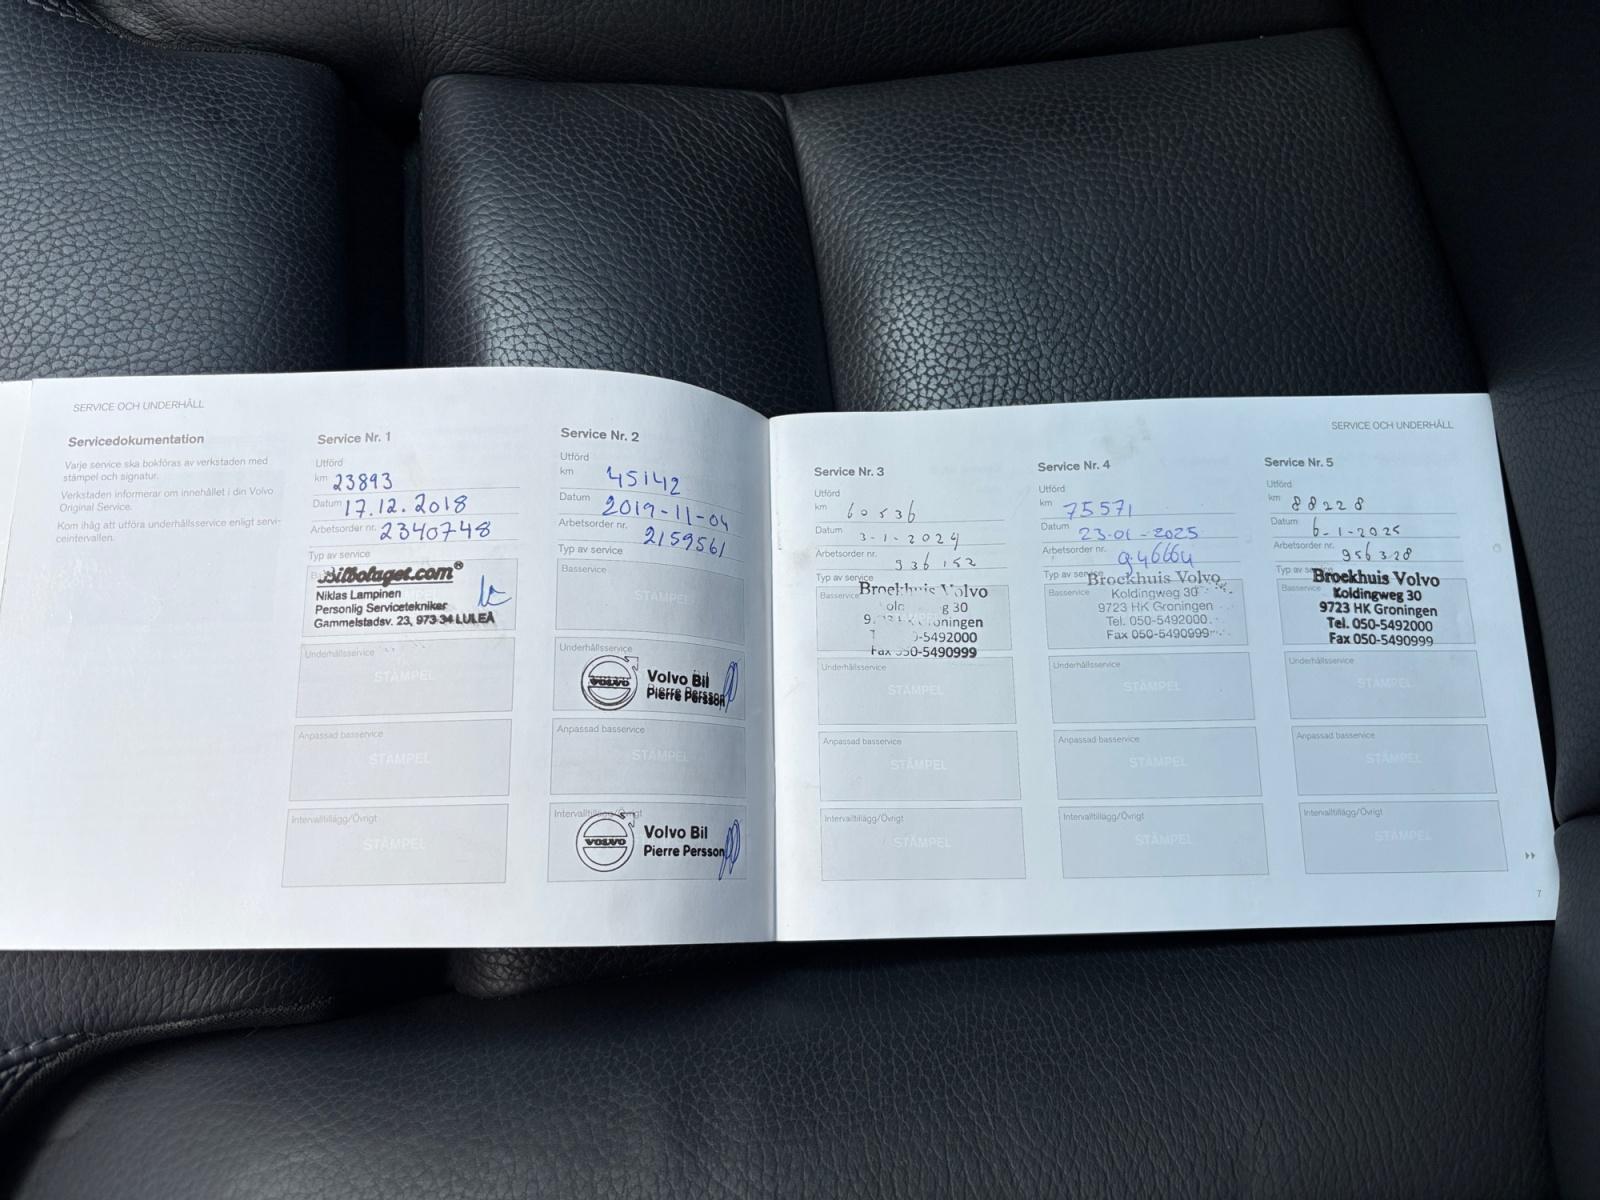 SERVICE OCH UNDERHÅLL
Servicedokumentation
Varje service ska bokföras av verkstaden med
stämpel och signatur.
Verkstaden informerar om innehållet i din Volvo
Original Service.
Kom ihåg att utföra underhållsservice enligt servi-
ceintervallen.
Service Nr. 1
Utförd
km 23893
Datum 17.12.2018
Arbetsorder nr. 2340748
Typ av service
Bilbolaget.com®
Niklas Lampinen
Personlig Servicetekniker
Gammelstadsv. 23, 973 34 LULEÅ
Underhållsservice
STÄMPEL
Anpassad basservice
STÄMPEL
Intervalltillägg/Övrigt
STÄMPEL
Service Nr. 2
Utförd
km 45142
Datum 2019-11-04
Arbetsorder nr. 2159561
Typ av service
Basservice
STÄMPEL
Underhållsservice
VOLVO
Volvo Bil
Pierre Persson
Anpassad basservice
STÄMPEL
Intervalltillägg/Övrigt
VOLVO
Volvo Bil
Pierre Persson
SERVICE OCH UNDERHÅLL
Service Nr. 3
Utförd
km 60536
Datum 3-1-2024
Arbetsorder nr. 936152
Typ av service
Basservice
Broekhuis Volvo
g 30
-5492000
Fax 050-5490999
Underhållsservice
STÄMPEL
Anpassad basservice
STÄMPEL
Intervalltillägg/Övrigt
STÄMPEL
Service Nr. 4
Utförd
km 75571
Datum 23-01-2025
Arbetsorder nr. 946664
Typ av service
Basservice
Broekhuis Volvo
Koldingweg 30
9723 HK Groningen
Tel. 050-5492000
Fax 050-5490999
Underhållsservice
STÄMPEL
Anpassad basservice
STÄMPEL
Intervalltillägg/Övrigt
STÄMPEL
Service Nr. 5
Utförd
km 88228
Datum 6-1-2025
Arbetsorder nr. 956328
Typ av
Basservice
Broekhuis Volvo
Koldingweg 30
9723 HK Groningen
Tel. 050-5492000
Fax 050-5490999
Underhållsservice
STÄMPEL
Anpassad basservice
STÄMPEL
Intervalltillägg/Övrigt
STÄMPEL
7